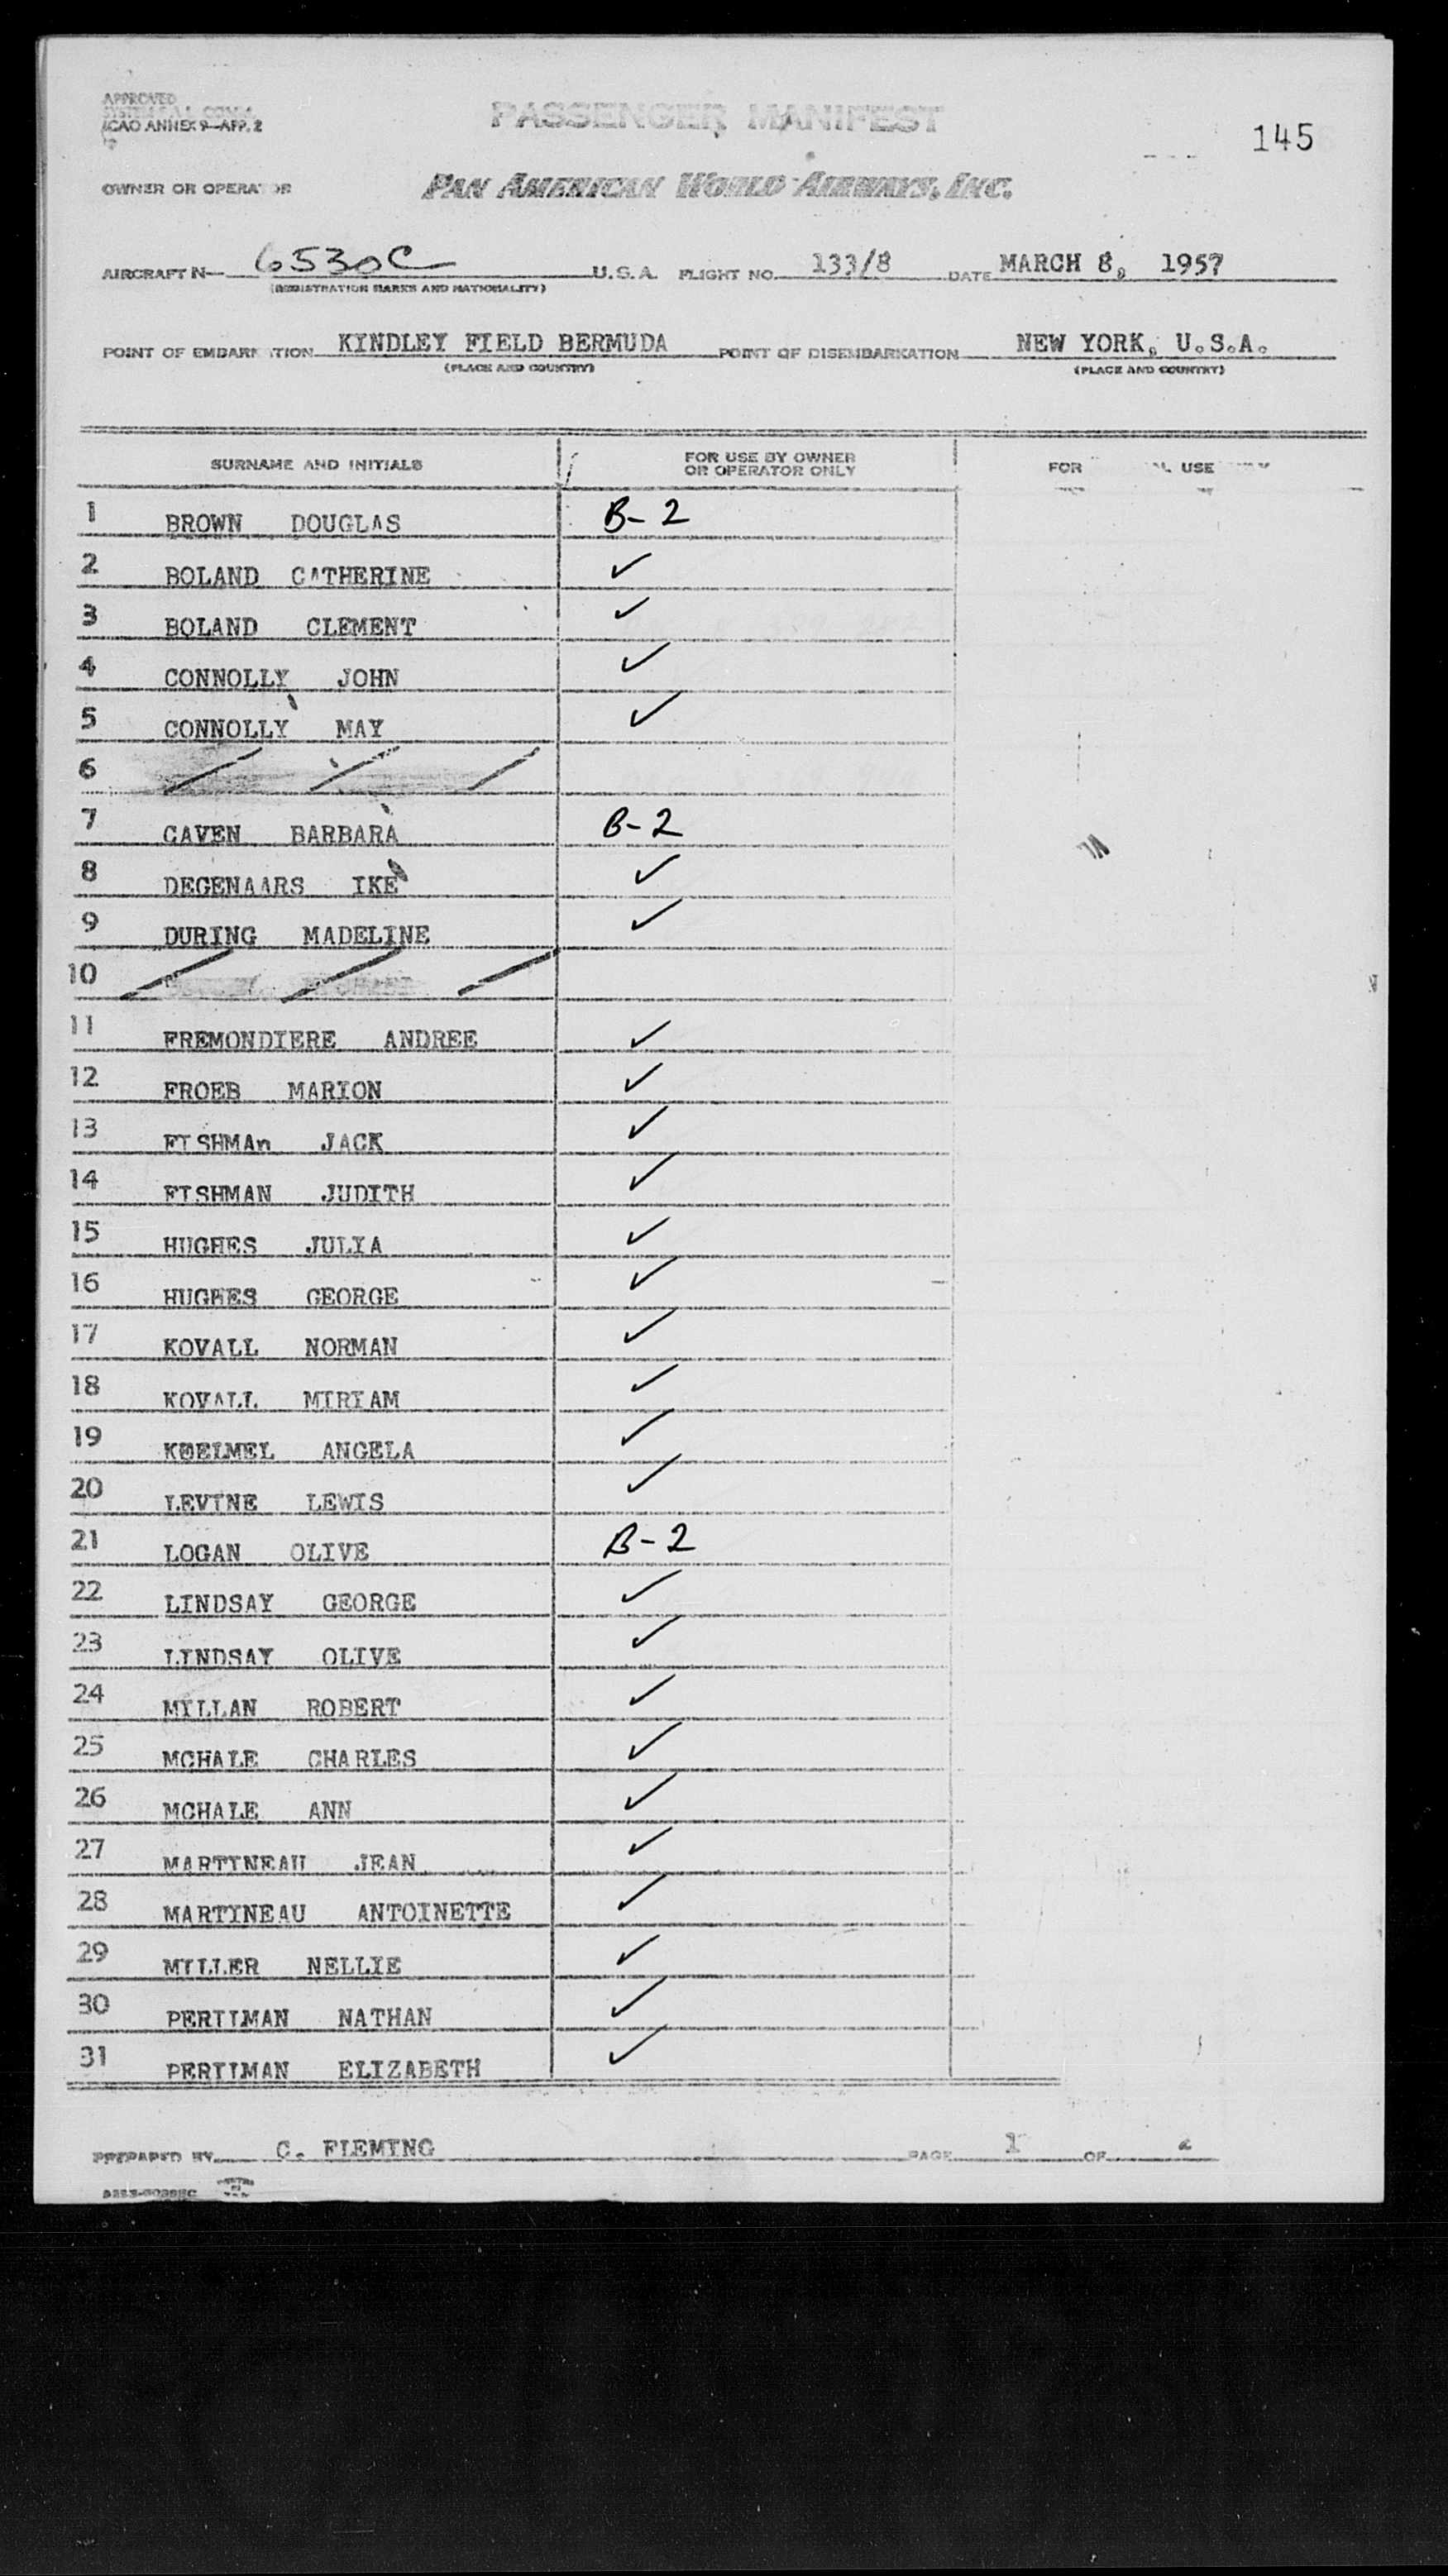 APPROVED
ICAO ANNEX 9—APP. 2
PASSENGER MANIFEST
145
OWNER OR OPERATOR PAN AMERICAN WORLD AIRWAYS, INC.
AIRCRAFT N— 6530C U.S.A. FLIGHT NO. 133/8 DATE MARCH 8, 1957
(REGISTRATION MARKS AND NATIONALITY)
POINT OF EMBARKATION KINDLEY FIELD BERMUDA POINT OF DISEMBARKATION NEW YORK, U.S.A.
(PLACE AND COUNTRY) (PLACE AND COUNTRY)
SURNAME AND INITIALS FOR USE BY OWNER OR OPERATOR ONLY FOR USE
1 BROWN DOUGLAS B-2
2 BOLAND CATHERINE ✓
3 BOLAND CLEMENT ✓
4 CONNOLLY JOHN ✓
5 CONNOLLY MAY ✓
6
7 CAVEN BARBARA B-2
8 DEGENAARS IKE ✓
9 DURING MADELINE ✓
10
11 FREMONDIERE ANDREE ✓
12 FROEB MARION ✓
13 FISHMAn JACK ✓
14 FISHMAN JUDITH ✓
15 HUGHES JULIA ✓
16 HUGHES GEORGE ✓
17 KOVALL NORMAN ✓
18 KOVALL MIRIAM ✓
19 KOELMEL ANGELA ✓
20 LEVINE LEWIS ✓
21 LOGAN OLIVE B-2
22 LINDSAY GEORGE ✓
23 LINDSAY OLIVE ✓
24 MILLAN ROBERT ✓
25 MCHALE CHARLES ✓
26 MCHALE ANN ✓
27 MARTINEAU JEAN ✓
28 MARTINEAU ANTOINETTE ✓
29 MILLER NELLIE ✓
30 PERLMAN NATHAN ✓
31 PERLMAN ELIZABETH ✓
PREPARED BY C. FLEMING PAGE 1 OF 2